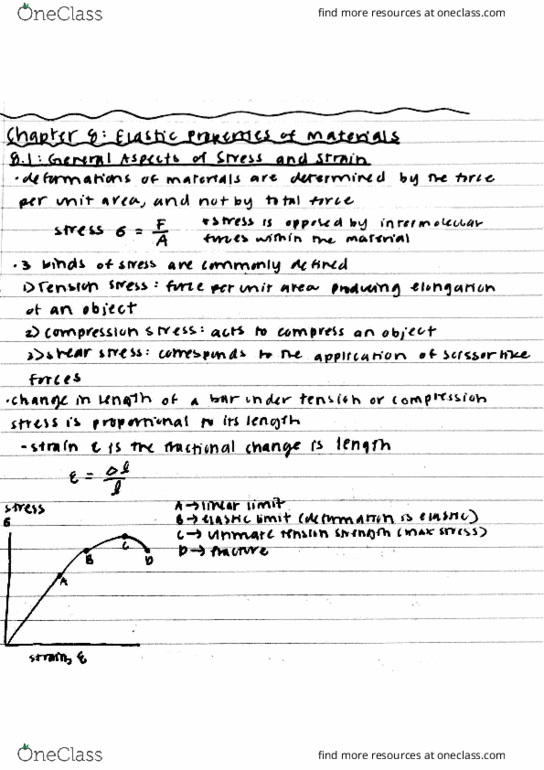 OneClass find more resources at oneclass.com
Chapter 8: Elastic Properties of Materials
8.1: General Aspects of Stress and Strain
• deformations of materials are determined by the force
per unit area, and not by total force
stress σ = F/A *stress is opposed by intermolecular
forces within the material
• 3 kinds of stress are commonly defined
1) Tension stress: force per unit area producing elongation
of an object
2) compression stress: acts to compress an object
3) shear stress: corresponds to the application of scissorlike
forces
• change in length of a bar under tension or compression
stress is proportional to its length
- strain ε is the fractional change is length
ε = Δl/l
stress
σ
A → linear limit
B → elastic limit (deformation is elastic)
C → ultimate tension strength (max stress)
D → fracture
A
B
C
D
strain, ε
OneClass find more resources at oneclass.com